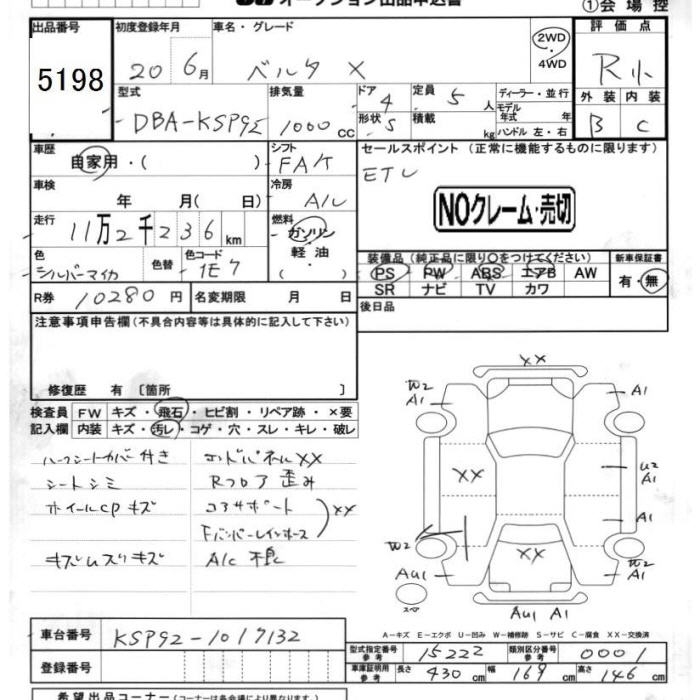 オークション出品申込書
①会場控
出品番号 5198
初度登録年月 20 6月
車名・グレード ベルタ X
2WD・4WD
評価点 R小
型式 DBA-KSP92
排気量 1000 cc
ドア 4 形状 S
定員 5 人 積載 kg
ディーラー・並行 モデル年式 年 ハンドル 左・右
外装 内装
B C
車歴 自家用・( )
シフト FA/T
セールスポイント (正常に機能するものに限ります)
車検 年 月( 日)
冷房 A/C
ETC
NOクレーム・売切
走行 11万2千236km
燃料 ガソリン 軽油・( )
色 シルバーマイカ 色替 色コード 1E7
装備品(純正品に限り○をつけてください) 新車保証書
PS PW ABS エアB AW 有・無
SR ナビ TV カワ
R券 10280円 名変期限 月 日
後日品
注意事項申告欄(不具合内容等は具体的に記入して下さい)
修復歴 有〔箇所 〕
検査員 FW キズ・飛石・ヒビ割・リペア跡・×要
記入欄 内装 キズ・汚レ・コゲ・穴・スレ・キレ・破レ
ハーフシートカバー付き
シートシミ
ホイールCPキズ
キズムスリキズ
エンドパネルXX
Rフロア歪み
コアサポート XX
Fバンパーレインホース
A/C不良
XX
W2 A1
A1
XX
U2 A1
A1
W2
AU1
XX
W2
A1
スペア
AU1 A1
A-キズ E-エクボ U-凹み W-補修跡 S-サビ C-腐食 XX-交換済
車台番号 KSP92-1017132
登録番号
型式指定番号 参考 15222 類別区分番号 参考 0001
車庫証明用 参考 長さ 430cm 幅 169cm 高さ 146cm
希望出品コーナー(コーナーは各会場により